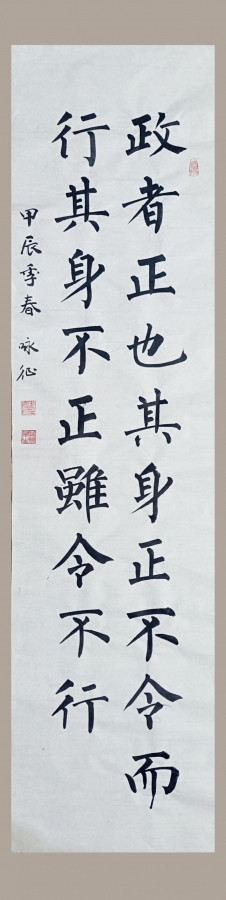 政者正也其身正不令而
行其身不正雖令不行
甲辰季春 咏征